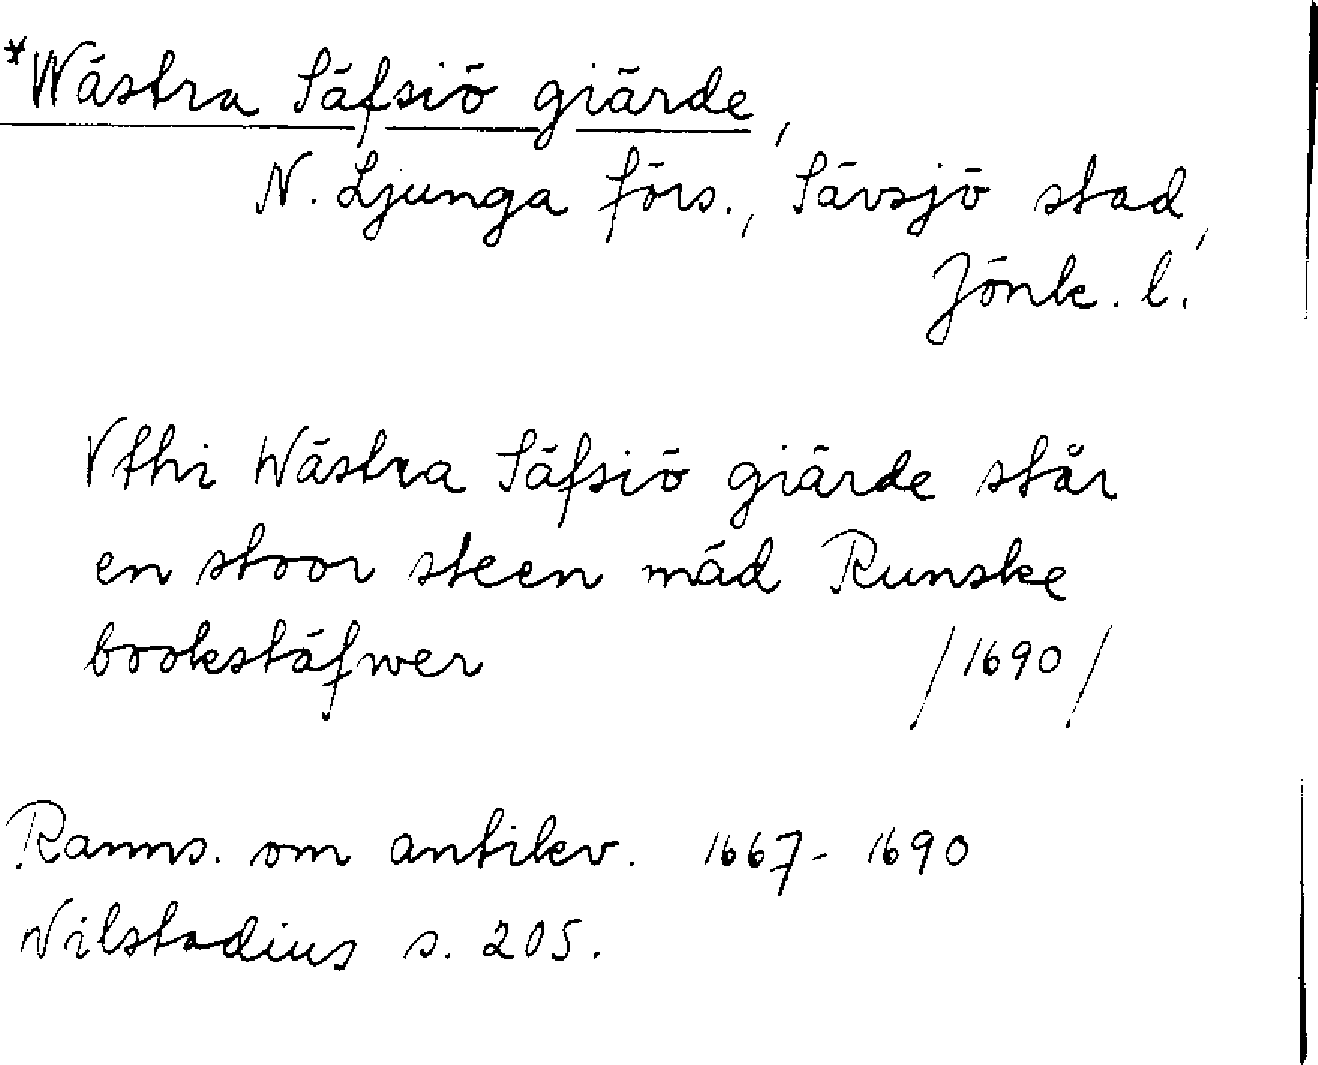 *Wästra Säfsiö giärde,
N. Ljunga förs., Sävsjö stad,
Jönk. l.
Vthi Wästra Säfsiö giärde står
en stoor steen mäd Runske
bookstäfwer /1690/
Ranns. om antikv. 1667-1690
Nilstadius s. 205.